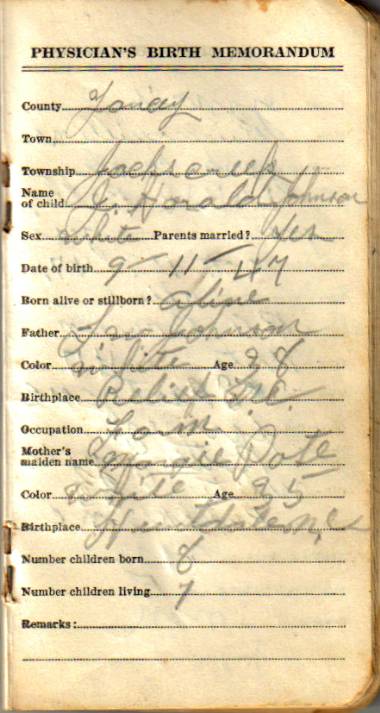 PHYSICIAN'S BIRTH MEMORANDUM
County Yancey
Town
Township Jacks Creek
Name
of child Harald Johnson
Sex White Parents married? Yes
Date of birth 9-11-47
Born alive or stillborn? Alive
Father Johnson
Color White Age 38
Birthplace Relief N.C.
Occupation Farm
Mother's
maiden name
Color White Age 35
Birthplace
Number children born 8
Number children living 7
Remarks: